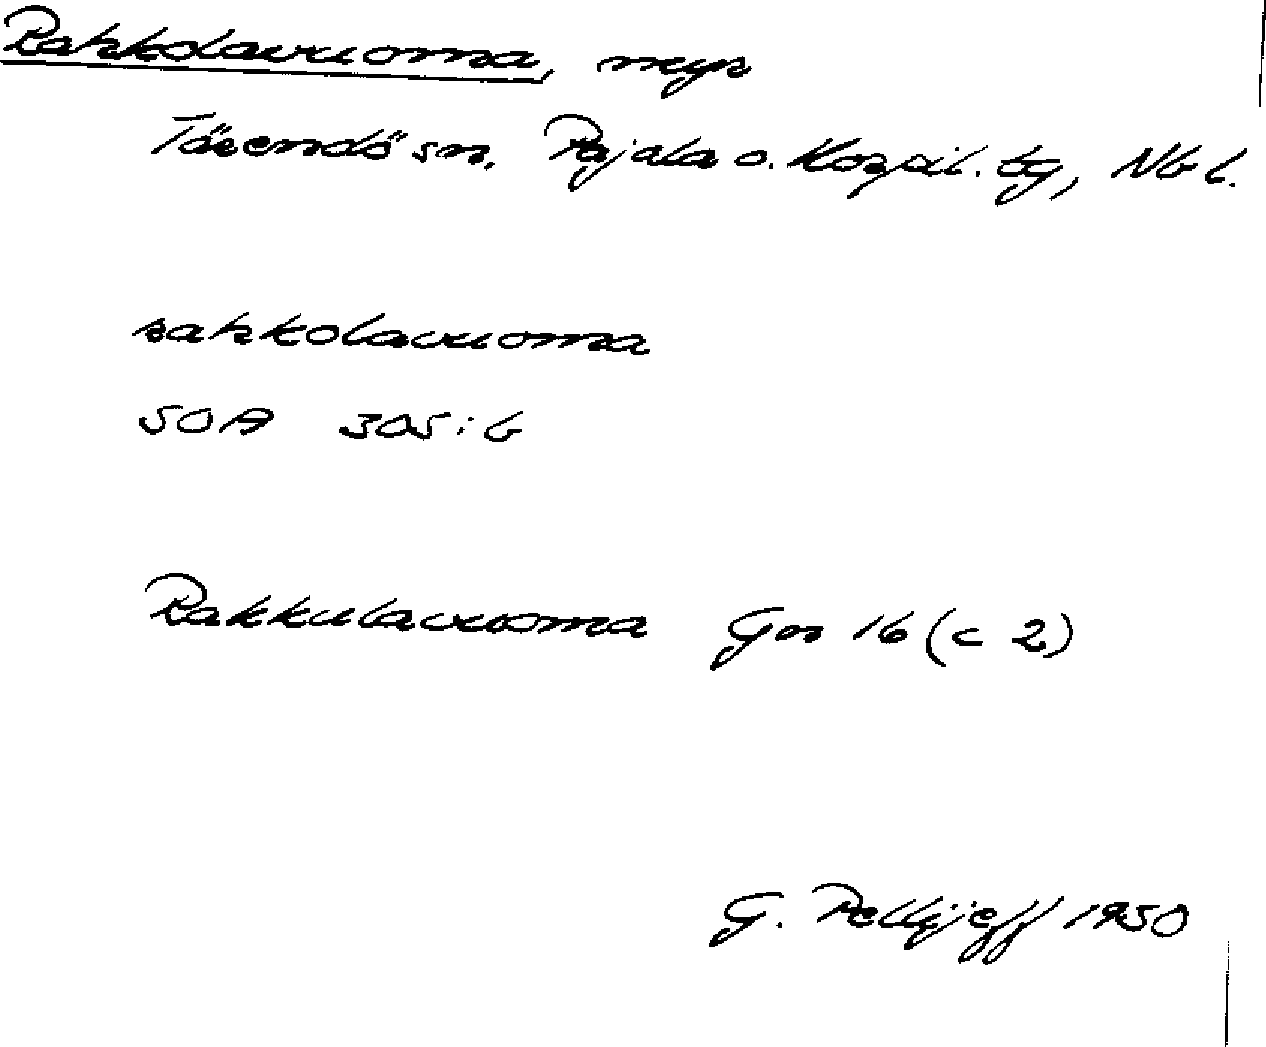 Rahkolavuoma, myr
Tärendö sn, Pajala o. Korpil. tg, Nb l.
rahkolavuoma
SOA 305:6
Rakkulavuoma Gen 16 (c 2)
G. Pellijeff 1950